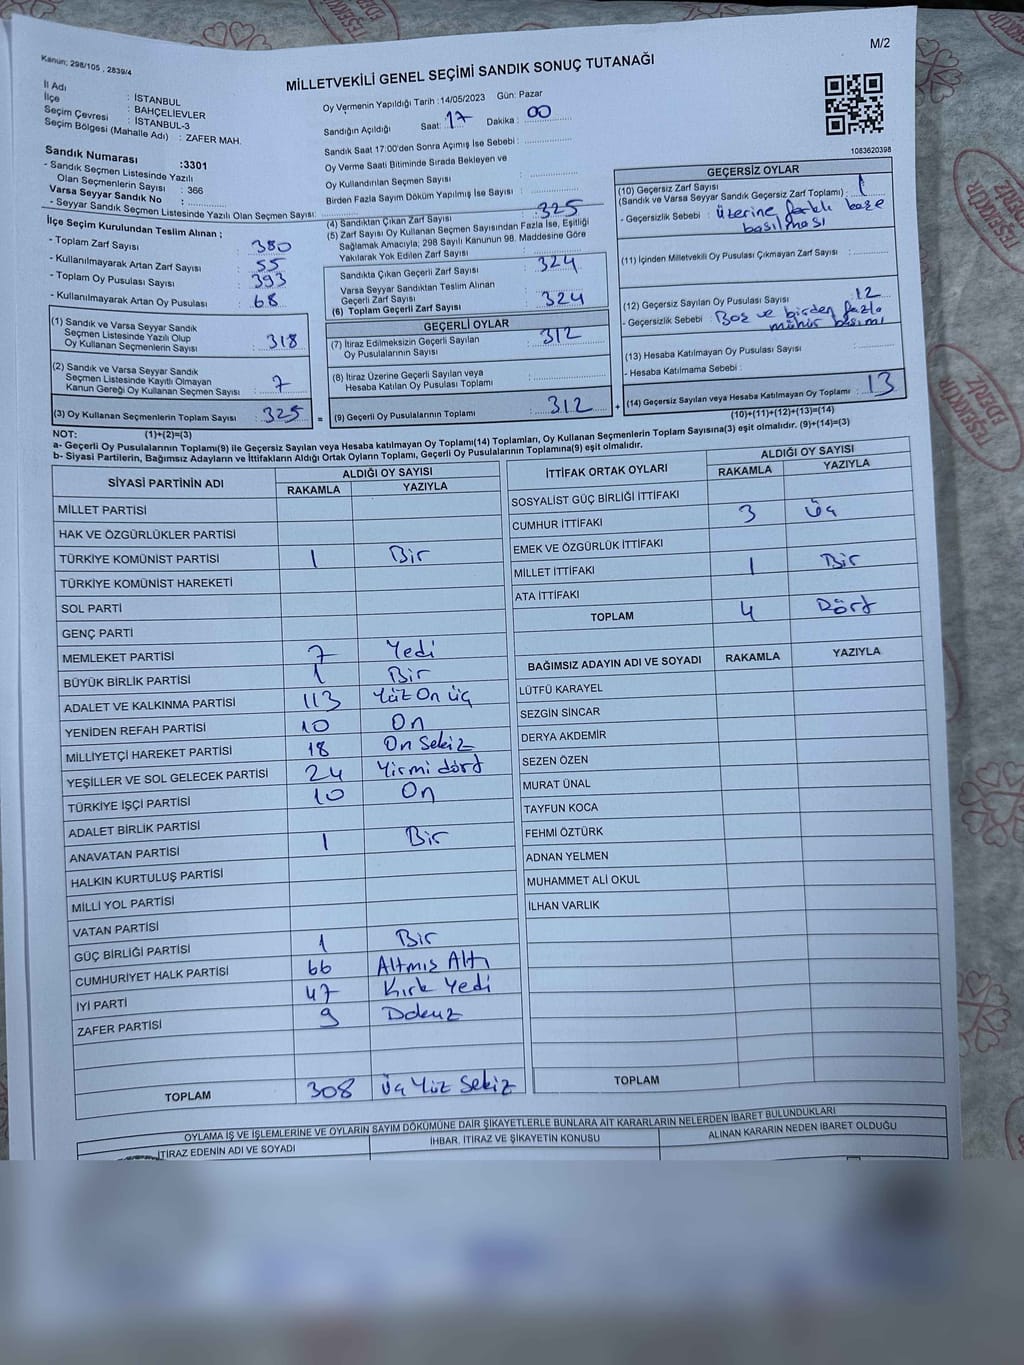 M/2
Kanun; 298/105 , 2839/4
MİLLETVEKİLİ GENEL SEÇİMİ SANDIK SONUÇ TUTANAĞI
İl Adı : İSTANBUL
İlçe : BAHÇELİEVLER
Seçim Çevresi : İSTANBUL-3
Seçim Bölgesi (Mahalle Adı) : ZAFER MAH.
Sandık Numarası :3301
- Sandık Seçmen Listesinde Yazılı
Olan Seçmenlerin Sayısı : 366
Varsa Seyyar Sandık No :
- Seyyar Sandık Seçmen Listesinde Yazılı Olan Seçmen Sayısı:
İlçe Seçim Kurulundan Teslim Alınan ;
- Toplam Zarf Sayısı : 380
- Kullanılmayarak Artan Zarf Sayısı : 55
- Toplam Oy Pusulası Sayısı : 393
- Kullanılmayarak Artan Oy Pusulası : 68
(1) Sandık ve Varsa Seyyar Sandık
Seçmen Listesinde Yazılı Olup
Oy Kullanan Seçmenlerin Sayısı : 318
(2) Sandık ve Varsa Seyyar Sandık
Seçmen Listesinde Kayıtlı Olmayan
Kanun Gereği Oy Kullanan Seçmen Sayısı : 7
(3) Oy Kullanan Seçmenlerin Toplam Sayısı : 325
(1)+(2)=(3)
Oy Vermenin Yapıldığı Tarih :14/05/2023 Gün: Pazar
Sandığın Açıldığı Saat: 17 Dakika : 00
Sandık Saat 17:00'den Sonra Açımış İse Sebebi :
Oy Verme Saati Bitiminde Sırada Bekleyen ve
Oy Kullandırılan Seçmen Sayısı :
Birden Fazla Sayım Döküm Yapılmış İse Sayısı :
(4) Sandıktan Çıkan Zarf Sayısı : 325
(5) Zarf Sayısı Oy Kullanan Seçmen Sayısından Fazla İse, Eşitliği
Sağlamak Amacıyla; 298 Sayılı Kanunun 98. Maddesine Göre
Yakılarak Yok Edilen Zarf Sayısı :
Sandıkta Çıkan Geçerli Zarf Sayısı : 324
Varsa Seyyar Sandıktan Teslim Alınan
Geçerli Zarf Sayısı :
(6) Toplam Geçerli Zarf Sayısı : 324
GEÇERLİ OYLAR
(7) İtiraz Edilmeksizin Geçerli Sayılan
Oy Pusulalarının Sayısı : 312
(8) İtiraz Üzerine Geçerli Sayılan veya
Hesaba Katılan Oy Pusulası Toplamı :
= (9) Geçerli Oy Pusulalarının Toplamı : 312
1083620398
GEÇERSİZ OYLAR
(10) Geçersiz Zarf Sayısı
(Sandık ve Varsa Seyyar Sandık Geçersiz Zarf Toplamı) : 1
- Geçersizlik Sebebi : üzerine farklı kaşe
basılması
(11) İçinden Milletvekili Oy Pusulası Çıkmayan Zarf Sayısı :
(12) Geçersiz Sayılan Oy Pusulası Sayısı : 12
- Geçersizlik Sebebi : Boş ve birden fazla
mühür basımı
(13) Hesaba Katılmayan Oy Pusulası Sayısı :
- Hesaba Katılmama Sebebi :
+ (14) Geçersiz Sayılan veya Hesaba Katılmayan Oy Toplamı : 13
(10)+(11)+(12)+(13)=(14)
NOT:
a- Geçerli Oy Pusulalarının Toplamı(9) ile Geçersiz Sayılan veya Hesaba katılmayan Oy Toplamı(14) Toplamları, Oy Kullanan Seçmenlerin Toplam Sayısına(3) eşit olmalıdır. (9)+(14)=(3)
b- Siyasi Partilerin, Bağımsız Adayların ve İttifakların Aldığı Ortak Oyların Toplamı, Geçerli Oy Pusulalarının Toplamına(9) eşit olmalıdır.
SİYASİ PARTİNİN ADI ALDIĞI OY SAYISI
RAKAMLA YAZIYLA
MİLLET PARTİSİ
HAK VE ÖZGÜRLÜKLER PARTİSİ
TÜRKİYE KOMÜNİST PARTİSİ 1 Bir
TÜRKİYE KOMÜNİST HAREKETİ
SOL PARTİ
GENÇ PARTİ
MEMLEKET PARTİSİ 7 Yedi
BÜYÜK BİRLİK PARTİSİ 1 Bir
ADALET VE KALKINMA PARTİSİ 113 Yüz On üç
YENİDEN REFAH PARTİSİ 10 On
MİLLİYETÇİ HAREKET PARTİSİ 18 On Sekiz
YEŞİLLER VE SOL GELECEK PARTİSİ 24 Yirmi dört
TÜRKİYE İŞÇİ PARTİSİ 10 On
ADALET BİRLİK PARTİSİ
ANAVATAN PARTİSİ 1 Bir
HALKIN KURTULUŞ PARTİSİ
MİLLİ YOL PARTİSİ
VATAN PARTİSİ
GÜÇ BİRLİĞİ PARTİSİ 1 Bir
CUMHURİYET HALK PARTİSİ 66 Altmış Altı
İYİ PARTİ 47 Kırk Yedi
ZAFER PARTİSİ 9 Dokuz
TOPLAM 308 Üç Yüz Sekiz
İTTİFAK ORTAK OYLARI ALDIĞI OY SAYISI
RAKAMLA YAZIYLA
SOSYALİST GÜÇ BİRLİĞİ İTTİFAKI
CUMHUR İTTİFAKI 3 Üç
EMEK VE ÖZGÜRLÜK İTTİFAKI
MİLLET İTTİFAKI 1 Bir
ATA İTTİFAKI
TOPLAM 4 Dört
BAĞIMSIZ ADAYIN ADI VE SOYADI RAKAMLA YAZIYLA
LÜTFÜ KARAYEL
SEZGİN SİNCAR
DERYA AKDEMİR
SEZEN ÖZEN
MURAT ÜNAL
TAYFUN KOCA
FEHMİ ÖZTÜRK
ADNAN YELMEN
MUHAMMET ALİ OKUL
İLHAN VARLIK
TOPLAM
OYLAMA İŞ VE İŞLEMLERİNE VE OYLARIN SAYIM DÖKÜMÜNE DAİR ŞİKAYETLERLE BUNLARA AİT KARARLARIN NELERDEN İBARET BULUNDUKLARI
İTİRAZ EDENİN ADI VE SOYADI İHBAR, İTİRAZ VE ŞİKAYETİN KONUSU ALINAN KARARIN NEDEN İBARET OLDUĞU
TEŞEKKÜR EDERİZ
TEŞEKKÜR EDERİZ